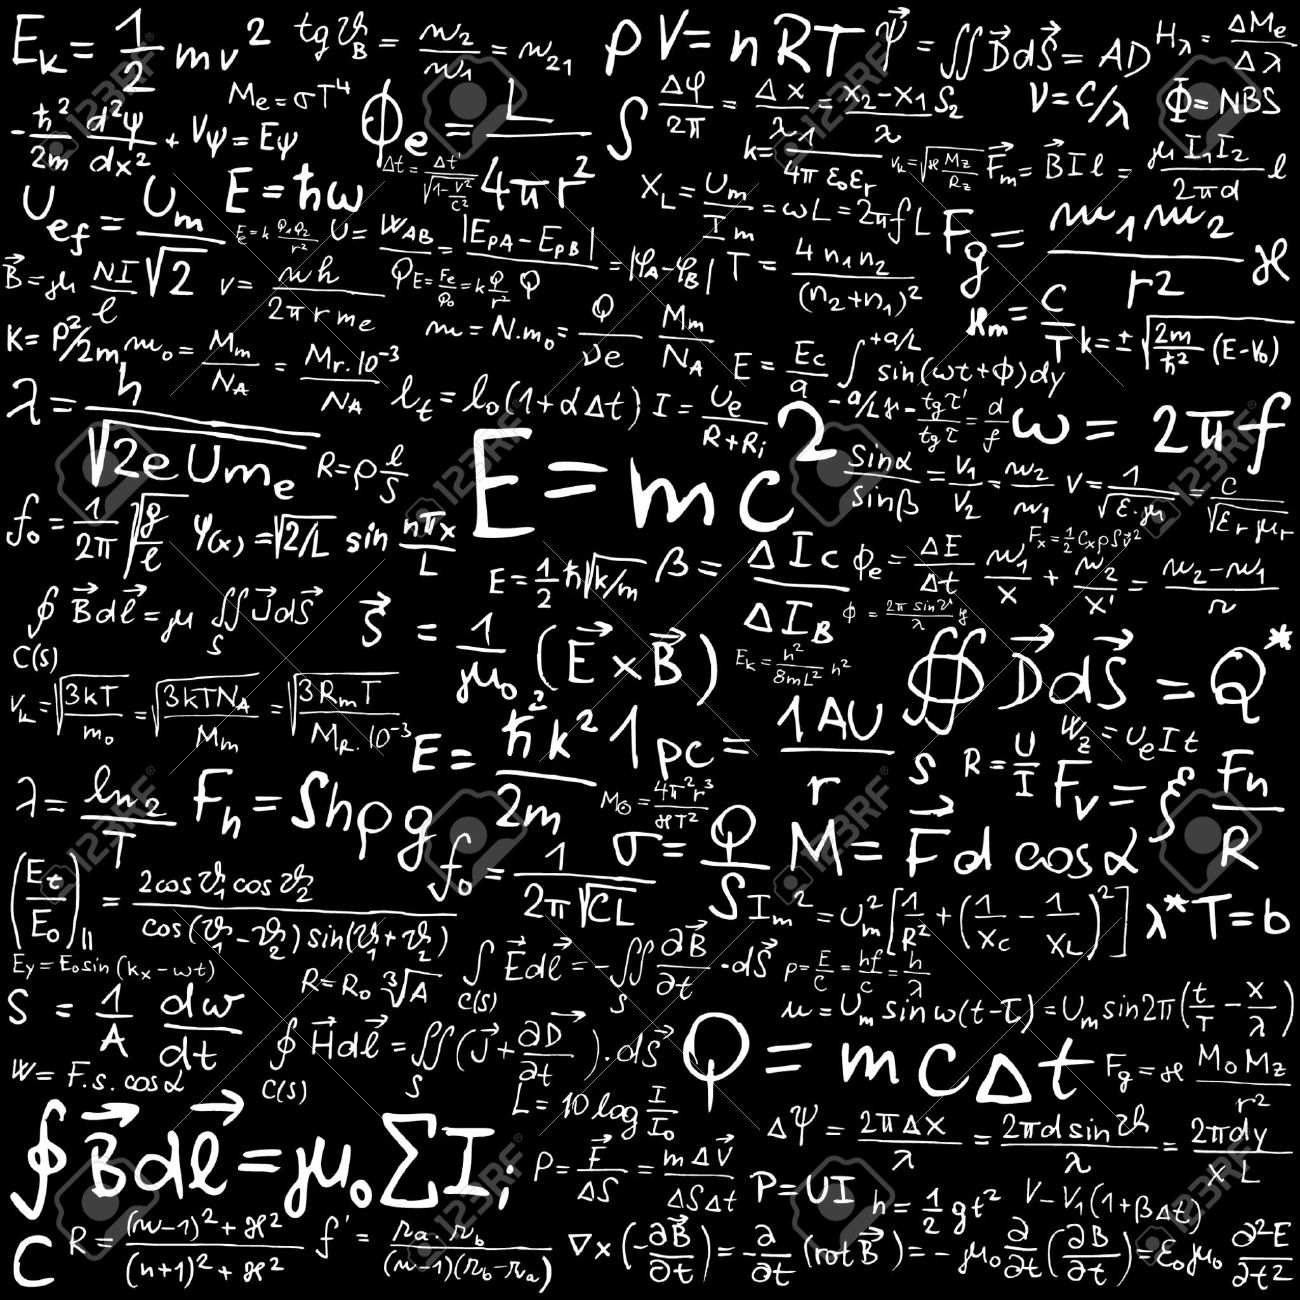 Eₖ = 1/2 mv²
tgϑ_B = n₂/n₁ = n₂₁
pV = nRT
Ψ⃗ = ∬D⃗dS⃗ = AD
H_λ = ΔMe/Δλ
Me = σT⁴
Φe = L/4πr²
∫
Δφ/2π = Δx/λ = x₂-x₁/λ
S₂
v = c/λ
Φ = NBS
-ħ²/2m d²ψ/dx² + Vψ = Eψ
Δt = Δt'/√1-v²/c²
k = 1/4πε₀εr
vₖ = √ϰ Mz/Rz
F⃗m = B⃗Il = μI₁I₂/2πd l
Uef = Um/√2
E = ħω
X_L = Um/Im = ωL = 2πfL
Fg = m₁m₂/r² ϰ
Ee = k Q₁Q₂/r²
U = W_AB/Q = |E_PA - E_PB|/Q = |φ_A - φ_B|
T = 4n₁n₂/(n₂+n₁)²
B⃗ = μ NI/l
v = nh/2πrme
E = Fe/Q₀ = k Q/r²
ϰm = C/T
k = p²/2m
m₀ = Mm/N_A = Mr.10⁻³/N_A
m = N.m₀ = Q/νe Mm/N_A
k = ±√2m/ħ² (E-V₀)
E = Ec/a
∫ +a/2 sin(ωt+φ)dy -a/2
λ = h/√2eUme
lt = l₀(1+αΔt)
I = Ue/R+Ri
tgτ'/tgτ = d/f
ω = 2πf
R = ρ l/S
E = mc²
sinα/sinβ = v₁/v₂ = n₂/n₁
v = 1/√ε.μ = c/√εrμr
f₀ = 1/2π √g/l
Ψ(x) = √2/L sin nπx/L
Fx = 1/2 CxρSv²
E = 1/2 ħ√k/m
β = ΔIc/ΔI_B
Φe = ΔE/Δt
n₁/x + n₂/x' = n₂-n₁/r
∮ B⃗dl⃗ = μ ∬ J⃗dS⃗
C(S) S
S⃗ = 1/μ₀ (E⃗×B⃗)
Eₖ = h²/8mL² n²
∯ D⃗dS⃗ = Q*
vₖ = √3kT/m₀ = √3kTN_A/Mm = √3RmT/Mr.10⁻³
E = ħ²k²/2m
1pc = 1AU/r
S
R = U/I
Wz = UeIt
Fv = ξ Fn/R
λ = ln2/T
Fh = Shρg
M⊙ = 4π²r³/ϰT²
f₀ = 1/2π√CL
σ = Q/S
M = F⃗d cosα
(Et/E₀)∥ = 2cosϑ₁cosϑ₂/cos(ϑ₁-ϑ₂)sin(ϑ₁+ϑ₂)
Im² = Um²[1/R² + (1/Xc - 1/X_L)²]
λ*T = b
Ey = E₀sin(kx-ωt)
R = R₀ ³√A
∫ E⃗dl⃗ = -∬ ∂B⃗/∂t . dS⃗
C(S) S
p = E/c = hf/c = h/λ
S = 1/A dw/dt
u = Um sinω(t-τ) = Um sin2π(t/T - x/λ)
∮ H⃗dl⃗ = ∬(J⃗ + ∂D⃗/∂t).dS⃗
C(S) S
Q = mcΔt
Fg = ϰ M₀Mz/r²
W = F.s.cosα
L = 10log I/I₀
∮B⃗dl⃗ = μ₀ΣIᵢ
Δψ = 2πΔx/λ = 2πdsinϑ/λ = 2πdy/λL
p = F⃗/ΔS = mΔv⃗/ΔSΔt
P = UI
h = 1/2 gt²
V = V₁(1+βΔt)
C
R = (n-1)²+ϰ²/(n+1)²+ϰ²
f' = ra.rb/(n-1)(rb-ra)
∇×(-∂B⃗/∂t) = -∂/∂t (rotB⃗) = -μ₀ ∂/∂t (∂B/∂t) = ε₀μ₀ ∂²E/∂t²